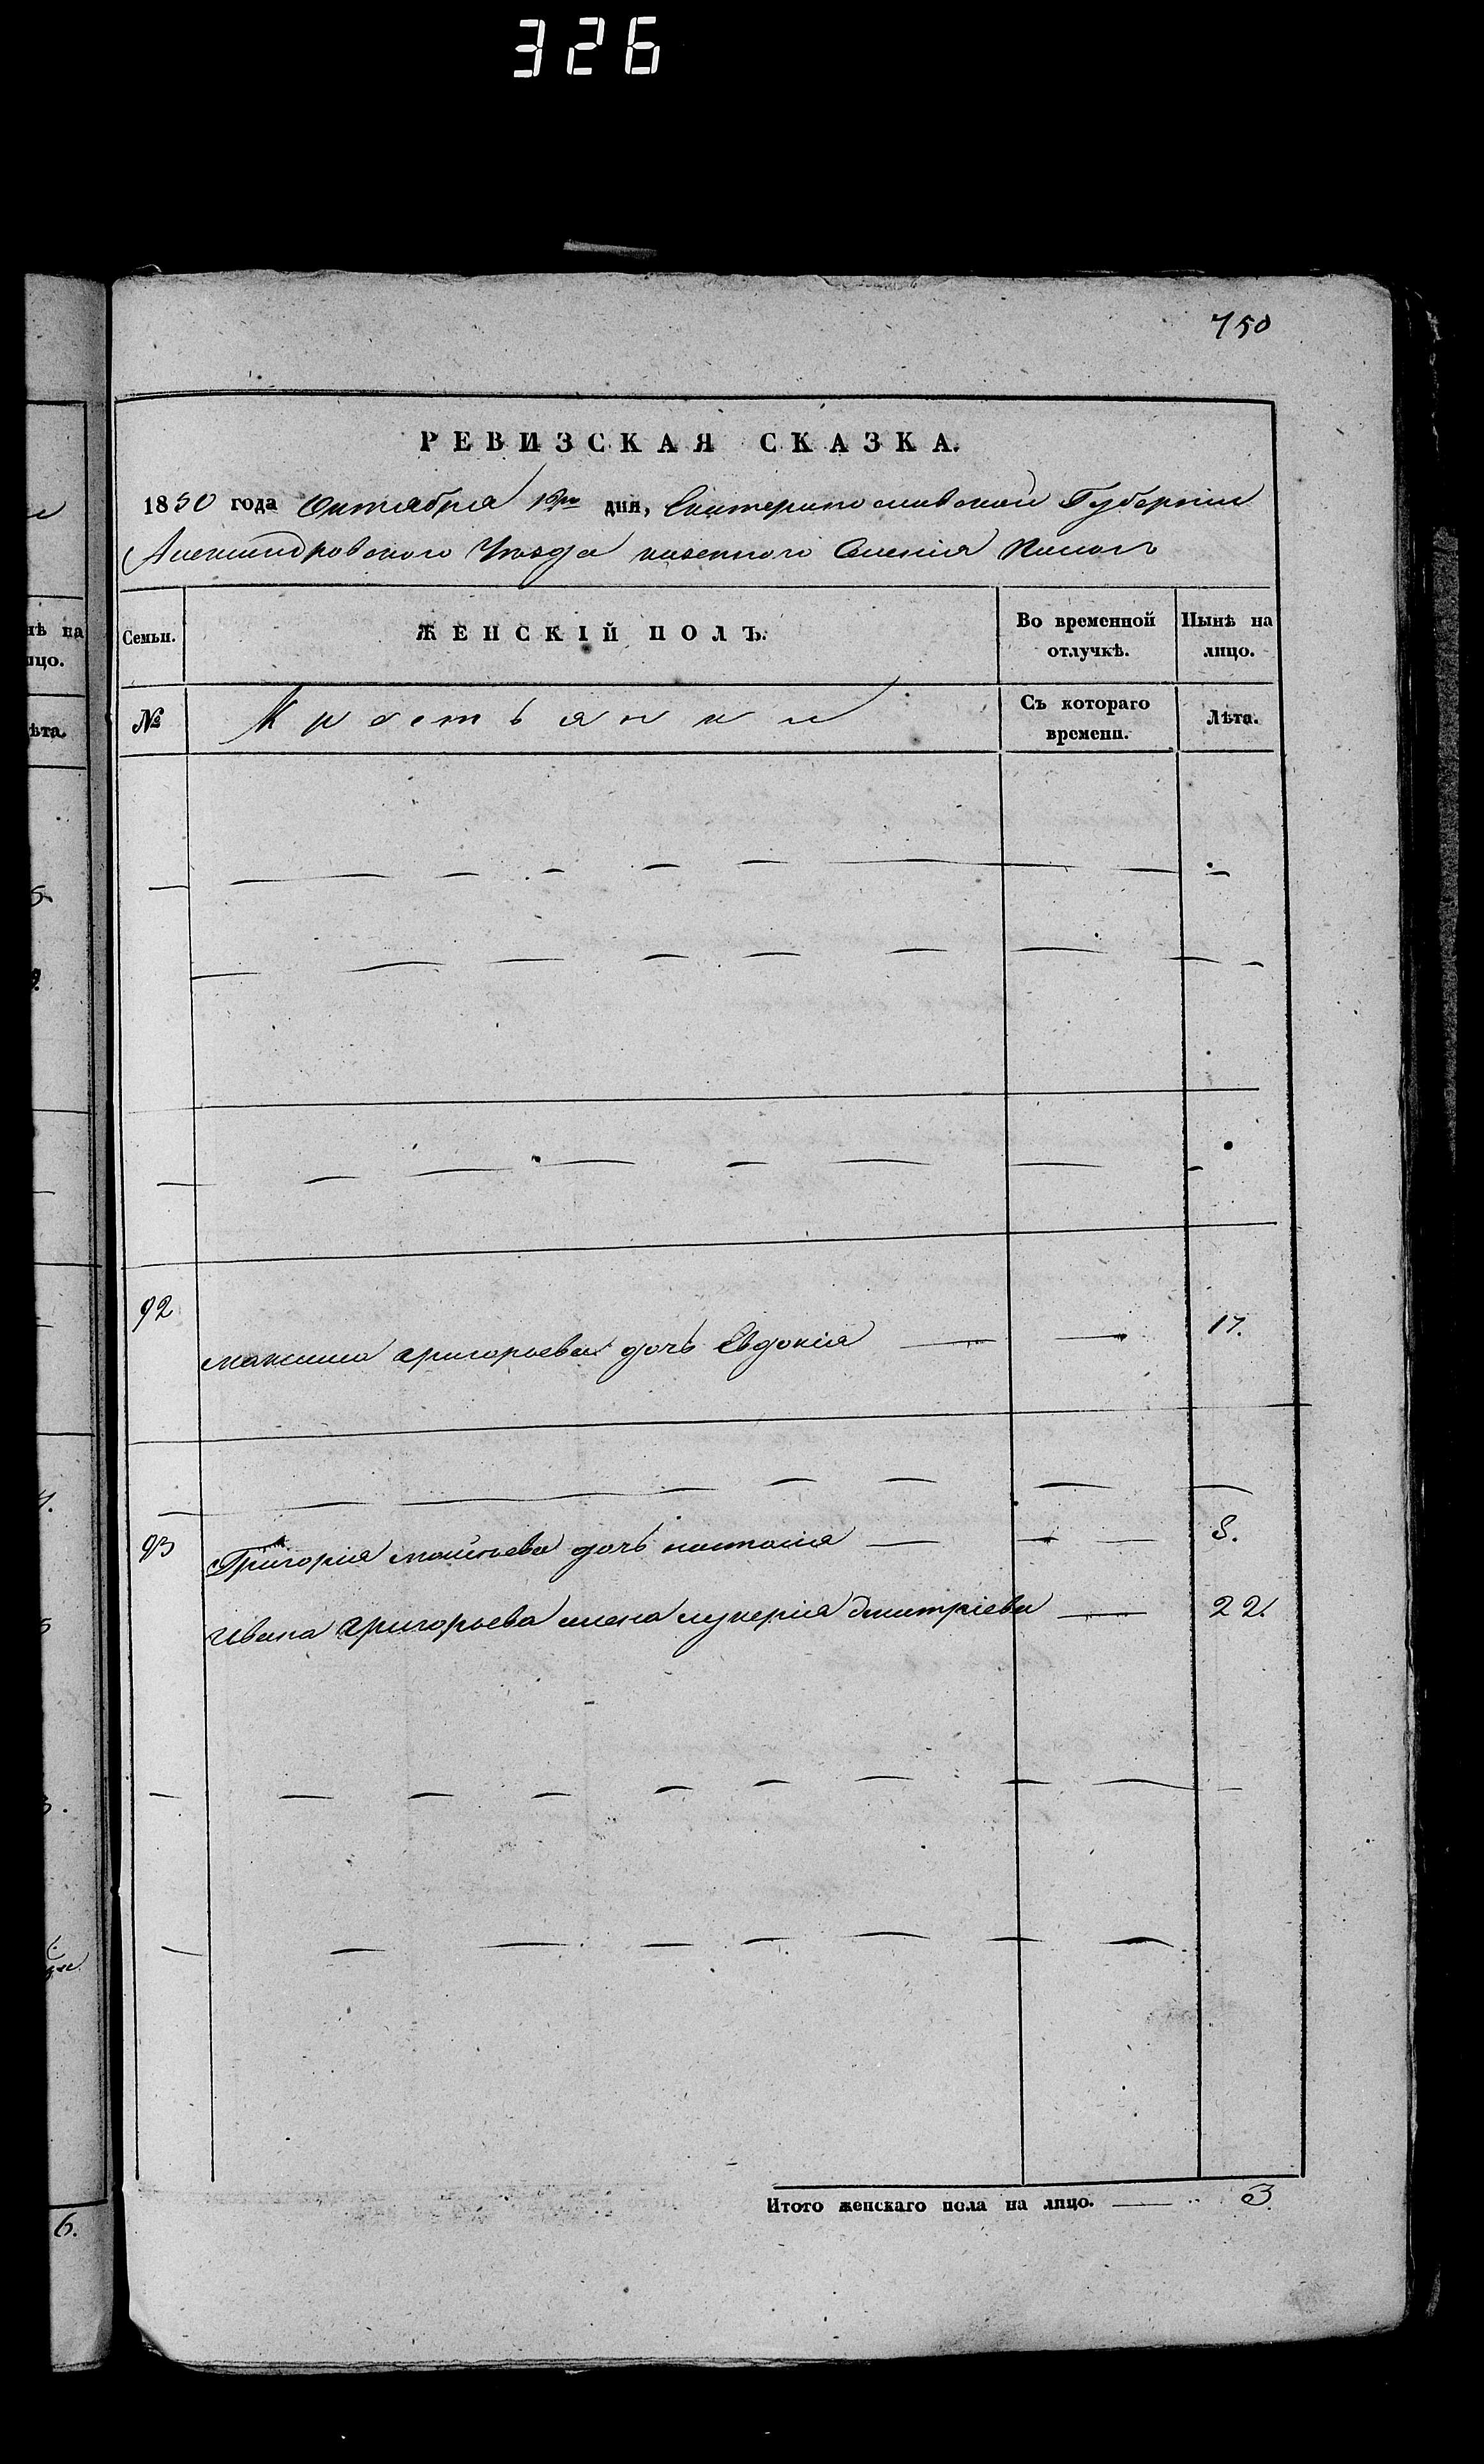 326
750
РЕВИЗСКАЯ СКАЗКА.
1850 года Октября дня, Екатеринославской Губернии
Александровского Уезда казенного Селения
Семьи. ЖЕНСКІЙ ПОЛЪ. Во временной отлучкѣ. Нынѣ на лицо.
№ Крестьянки Съ котораго времени. Лѣта.
92
Максима Григорьева дочь Евдокія 17.
93 Григорія дочь 8.
Ивана Григорьева жена лукерія дмитріева 22.
Итого женскаго пола на лицо. 3
нѣ на
ицо.
ѣта.
6.